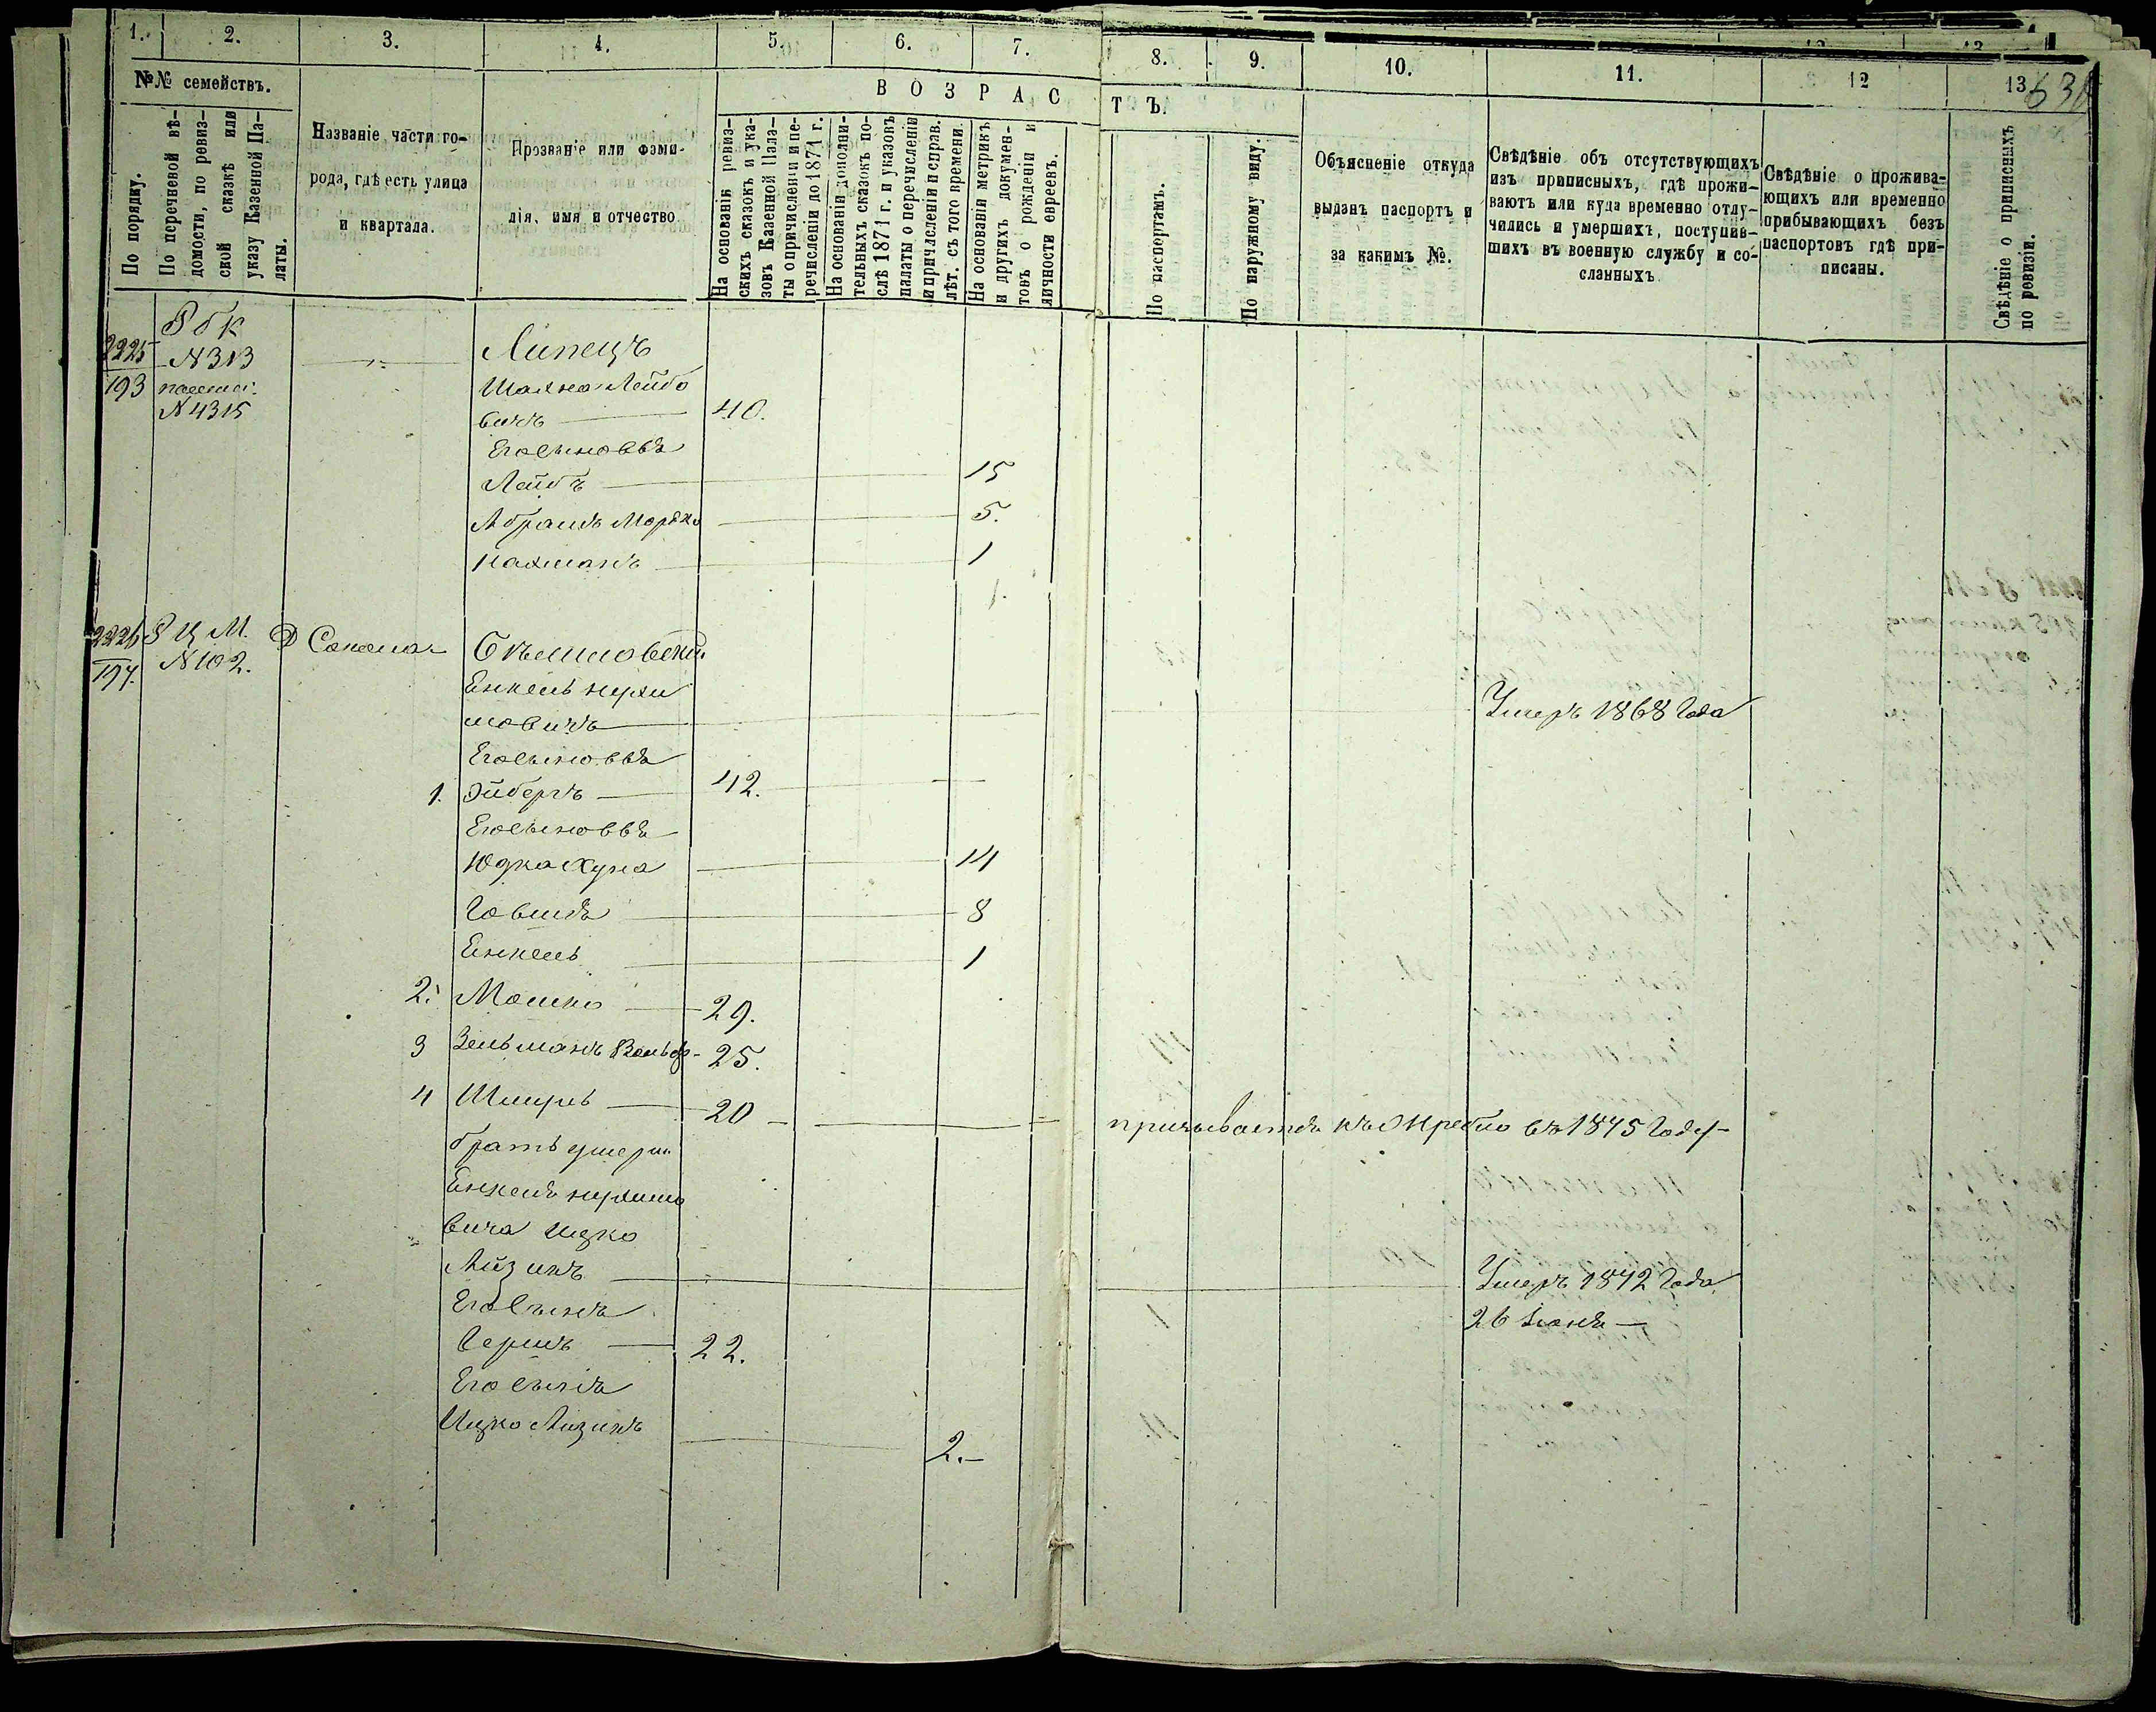 1.
2.
3.
4.
5.
6.
7.
8.
9.
10.
11.
12
13
638
№№ семействъ.
По порядку.
По перечневой вѣ-
домости, по ревиз-
ской сказкѣ или
указу Казенной Па-
латы.
Названіе части го-
рода, гдѣ есть улица
и квартала.
Прозваніе или фами-
лія, имя и отчество.
ВОЗРАС
ТЪ.
На основаніи ревиз-
скихъ сказокъ и ука-
зовъ Казенной Пала-
ты о причисленіи и пе-
речисленіи до 1871 г.
На основаніи дополни-
тельныхъ сказокъ по-
слѣ 1871 г. и указовъ
палаты о перечисленіи
и причисленіи и справ.
лѣт. съ того времени.
На основаніи метрикъ
и другихъ докумен-
товъ о рожденіи и
личности евреевъ.
По паспортамъ.
По наружному виду.
Объясненіе откуда
выданъ паспортъ и
за какимъ №.
Свѣдѣніе объ отсутствующихъ
изъ приписныхъ, гдѣ прожи-
ваютъ или куда временно отлу-
чились и умершихъ, поступив-
шихъ въ военную службу и со-
сланныхъ
Свѣдѣніе о прожива-
ющихъ или временно
прибывающихъ безъ
паспортовъ гдѣ при-
писаны.
Свѣдѣніе о приписныхъ
по ревизіи.
2225
193
№313
№4315
Липецъ
Шахна Лейбо
вичъ 40.
Его сыновья
Лейбъ 15
Абрамъ Мордко 5.
Нахманъ 1
2226
194.
Ц М.
№102.
Енкель Нухи
мовичъ Умеръ 1868 Года
Его сыновья
1. Эйберъ 42.
Его сыновья
Юдка Хуна 14
Говшія 8
Енкель 1
2. Мошко 29.
3 Зельманъ Вольф 25.
4 Шмуль 20 призывается къ жребію въ 1875 Году
братъ умерш
Енкеля Нухимо
вича Ицко
Айзикъ Умеръ 1872 Года
26 Іюня
Его сынъ
Берль 22.
Его сынъ
Ицко Айзикъ 2.